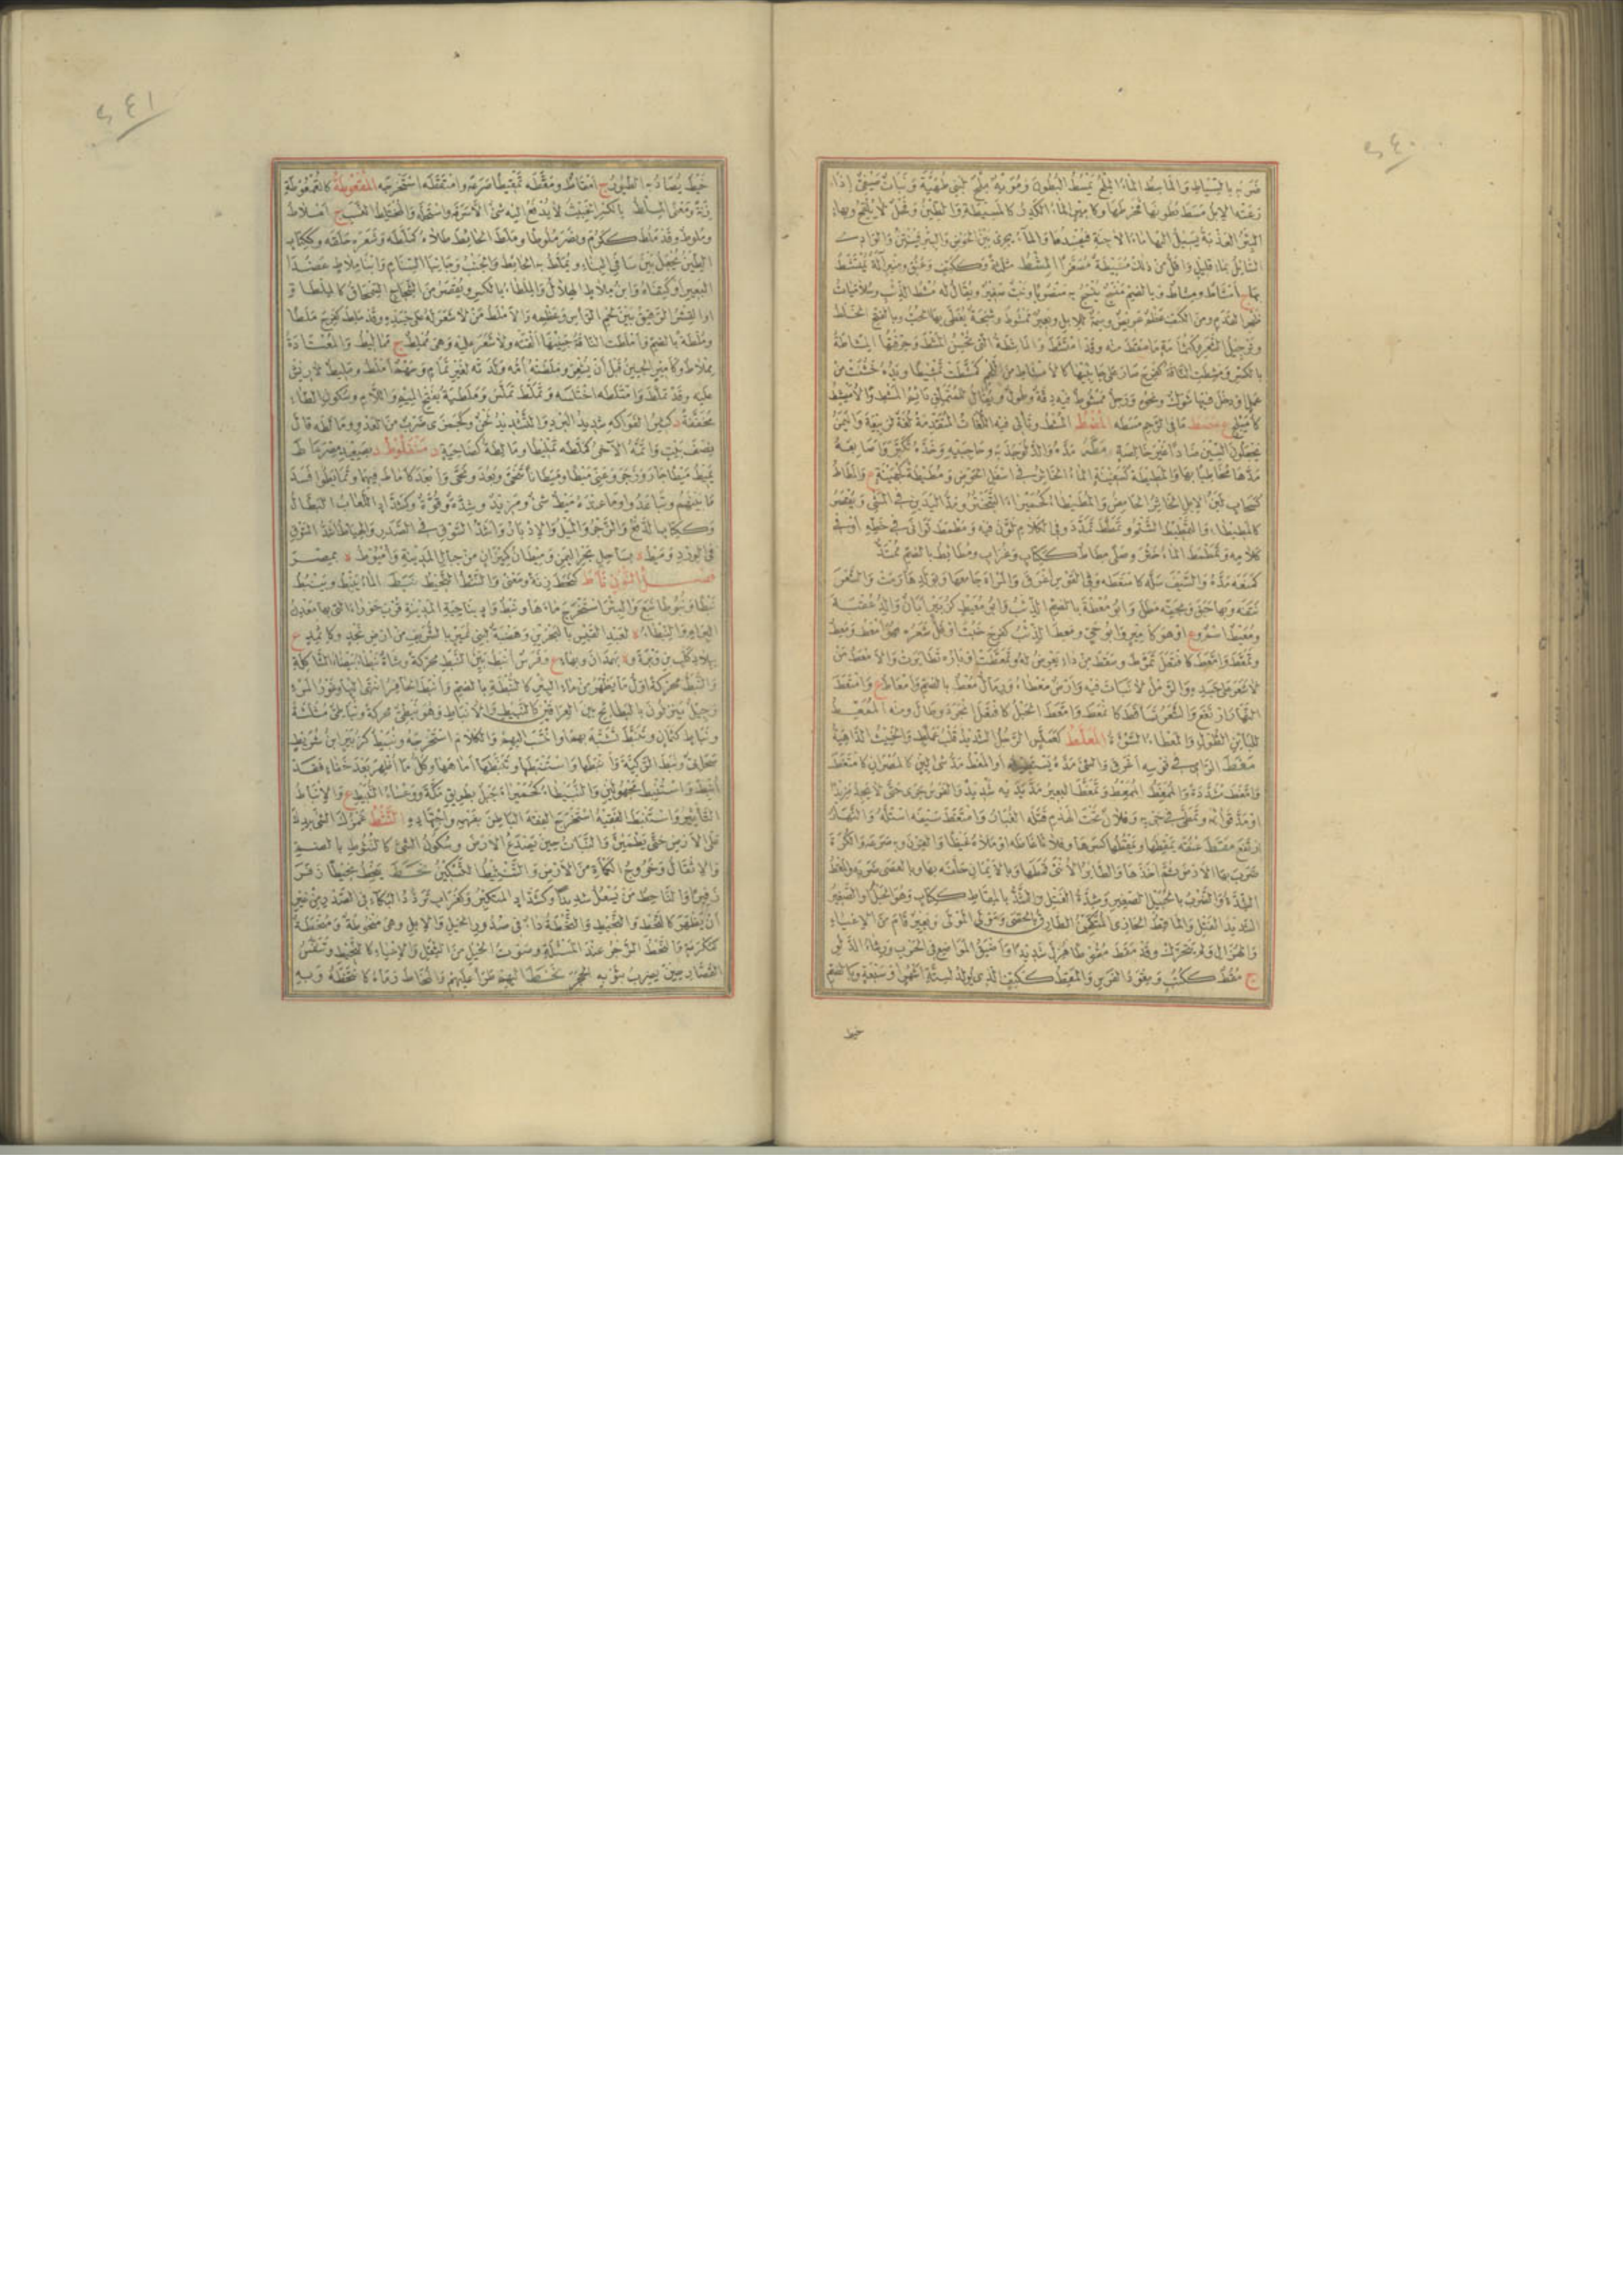 ٢٤٠
ضربه بالسياط والماسط الماء الملح يمسط البطون ومويه ملح لبني طهية ونبات صيفي إذا
رعته الإبل مسط بطونها فخرطها وكأمير الماء الكدر كالمسيطة والطين وفحل لا يلقح وبهاء
البئر العذبة يسيل إليها ماء الآجنة فيفسدها والماء يجري بين الحوض والبئر فينتن والوادي
السائل بماء قليل وأقل من ذلك مسيطة مصغرا المشط مثلثة وككتف وعنق ومنبر آلة يمتشط
بها ج أمشاط ومشاط وبالضم منسج ينسج به منصوبا ونبت صغير ويقال له مشط الذئب وسلاميات
ظهر القدم ومن الكتف عظم عريض وسمة للإبل وبعير ممشوط وسبحة يغطى بها الحب وبالفتح الخلط
وترجيل الشعر وكثمامة ما سقط منه وقد امتشط والماشطة التي تحسن المشط وحرفتها المشاطة
بالكسر ومشطت الناقة كفرح صار على جانبيها كالأمشاط من الشحم كمشطت تمشيطا ويده خشنت من
عمل أو دخل فيها شوك ونحوه ورجل ممشوط فيه دقة وطول
مضط
المضط المشط وتأتي فيه اللغات المتقدمة لغة لربيعة واليمن
يجعلون الشين ضادا غير خالصة مطه مده والدلو جذبه وحاجبيه وخده تكبر وأصابعه
مدها مخاطبا بها والمطيطة كسفينة الماء الخاثر في أسفل الحوض ومطيطة كجهينة ع والمطاط
كسحاب لبن الإبل الخاثر الحامض والمطيطاء كحميراء التبختر ومد اليدين في المشي ويقصر
كالمطيطاء والتمطيط الشتم وتمطط تمدد وفي الكلام لون فيه ومطمط توانى في خطه أو في
كلامه وتمطمط الماء خثر وصلى مطاط ككتاب وغراب ومطائط بالضم ممتد
كمنعه مده والسيف سله كامتعطه وفي القوس أغرق والمرأة جامعها وبولدها رمت والشعر
نتفه وبها حبق وبحقه مطل وأبو معطة بالضم الذئب وأبو معيط كزبير أبان والد عقبة
ومعيط ع أو هو كأمير وأبو حي ومعط الذئب كفرح خبث أو قل شعره فهو أمعط ومعط
وتمعط وامعط كافتعل تمرط وسقط من داء يعرض له وتمعطت أوباره تطايرت والأمعط من
لا شعر على جسده والرمل لا نبات فيه وأرض معطاء ورمال معط بالضم وأمعاط ع وامتعط
النهار ارتفع والشعر تساقط كانمعط وامعط الحبل كافتعل انجرد وطال ومنه الممعط
للبائن الطول والمعطاء السوءة المعلط كعملس الرجل الشديد قلب عملط والخبيث الداهية
مغط الرامي في قوسه أغرق والشيء مده يستطيله أو المغط مد شيء لين كالمصران فامتغط
وامغط مشددة والممغط الممعط وتمغط البعير مد يديه شديدا والفرس جرى حتى لا يجد مزيدا
أو مد قوائمه وتمطى في جريه وفلان تحت الهدم قتله الغبار وامتغط سيفه استله والنهار
ارتفع مقط عنقه يمقطها ويمقطها كسرها وفلانا غاظه أو ملأه غيظا والقرن وبه صرعه والكرة
ضرب بها الأرض ثم أخذها والطائر الأنثى قمطها وبالأيمان حلفه بها وبالعصا ضربه والمقط
الشدة والضرب بالحبيل الصغير وشدة الفتل والشد بالمقاط ككتاب وهو الحبل أو الصغير
الشديد الفتل والماقط الحازي المتكهن الطارق بالحصى ومولى المولى وبعير قام من الإعياء
والهزال ولم يتحرك وقد مقط مقوطا هزل شديدا وأضيق المواضع في الحرب ورشاء الدلو
ج مقط ككتب ومقود الفرس والمقط ككتف الذي يولد لستة أشهر أو سبعة وبالضم
خيط
٢٤١
خيط يصاد به الطيور ج أمقاط ومقطه تمقيطا صرعه وامتقطه استخرجه المقعوطة كالقمعوطة
زنة ومعنى الملط بالكسر الخبيث لا يدفع إليه شيء إلا سرقه واستحله والمختلط النسب ج أملاط
وملوط وقد ملط ككرم ونصر ملوطا وملط الحائط طلاه كملطه وشعره حلقه وككتاب
الطين يجعل بين سافي البناء ويملط به الحائط والجنب وجانبا السنام وابنا ملاط عضدا
البعير أو كتفاه وابن ملاط الهلال والملطاء بالكسر ويقصر من الشجاج السمحاق كالملطاة
أو القشر الرقيق بين لحم الرأس وعظمه والأملط من لا شعر له على جسده وقد ملط كفرح ملطا
وملطة بالضم وأملطت الناقة جنينها ألقته ولا شعر عليه وهي مملط ج مماليط والمعتادة
مملاط وكأمير الجنين قبل أن يشعر وملطته أمه ولدته لغير تمام وسهم أملط ومليط لا ريش
عليه وقد تملط وامتلطه اختلسه وتملط تملس وملطية بفتح الميم واللام وسكون الطاء
مخففة د كثير الفواكه شديد البرد والتشديد لحن وكجمزى ضرب من العدو ومالطه قال
نصف بيت وأتمه الآخر كملطه تمليطا ومالطة كصاحبة د منفلوط د بصعيد مصر ماط
يميط ميطا جار وزجر وعني ميطا وميطانا تنحى وبعد ونحى وأبعد كأماط فيهما وتمايطوا فسد
ما بينهم وتباعدوا وما عنده ميط شيء ومزيد وشدة وقوة وكشداد اللعاب البطال
وككتاب الدفع والزجر والميل والإدبار وأشد السوق في الصدر والهياط أشد السوق
في الورد وميط ة بساحل بحر اليمن وميطان كميزان من جبال المدينة وأميوط ة بمصر
فصل النون نأط كنحط زنة ومعنى والنئط النحيط نبط الماء ينبط وينبط
نبطا ونبوطا نبع والبئر استخرج ماءها ونبط واد بناحية المدينة قرب حوراء التي بها معدن
البرام والنبطاء ة لعبد القيس بالبحرين وهضبة لبني نمير بالشريف من أرض نجد وكإثمد ع
ببلاد كلب بن وبرة وة بهمذان وبهاء ع وفرس أنبط بين النبط محركة وشاة نبطاء بيضاء الشاكلة
والنبط محركة أول ما يظهر من ماء البئر كالنبطة بالضم وأنبط الحافر انتهى إليها وغور المرء
وجيل ينزلون بالبطائح بين العراقين كالنبيط والأنباط وهو نبطي محركة ونباطي مثلثة
ونباط كثمان وتنبط تشبه بهم أو انتسب إليهم والكلام استخرجه ونبيط كزبير ابن شريط
صحابي ونبط الركية وأنبطها واستنبطها وتنبطها أماهها وكل ما أظهر بعد خفاء فقد
أنبط واستنبط مجهولين والنبيطاء كحميراء جبل بطريق مكة ووعساء النبيط ع والإنباط
التأثير واستنبط الفقيه استخرج الفقه الباطن بفهمه واجتهاده النثط غمزك الشيء بيدك
على الأرض حتى يطمئن والنبات حين يصدع الأرض وسكون الشيء كالنثوط بالضم
والإثقال وخروج الكمأة من الأرض والتنثيط التسكين نحط ينحط نحيطا زفر
زفيرا والناحط من يسعل شديدا وكشداد المتكبر وكغراب تردد البكاء في الصدر من غير
أن يظهر كالنحط والنحيط والنحطة داء في صدور الخيل والإبل وهي منحوطة ومنحطة
كمكرمة والنحط الزجر عند المسألة وصوت الخيل من الثقل والإعياء كالنحيط وتنفس
القصار حين يضرب بثوبه الحجر نخط إليهم طرأ عليهم والمخاط رماه كانتخطه وبه